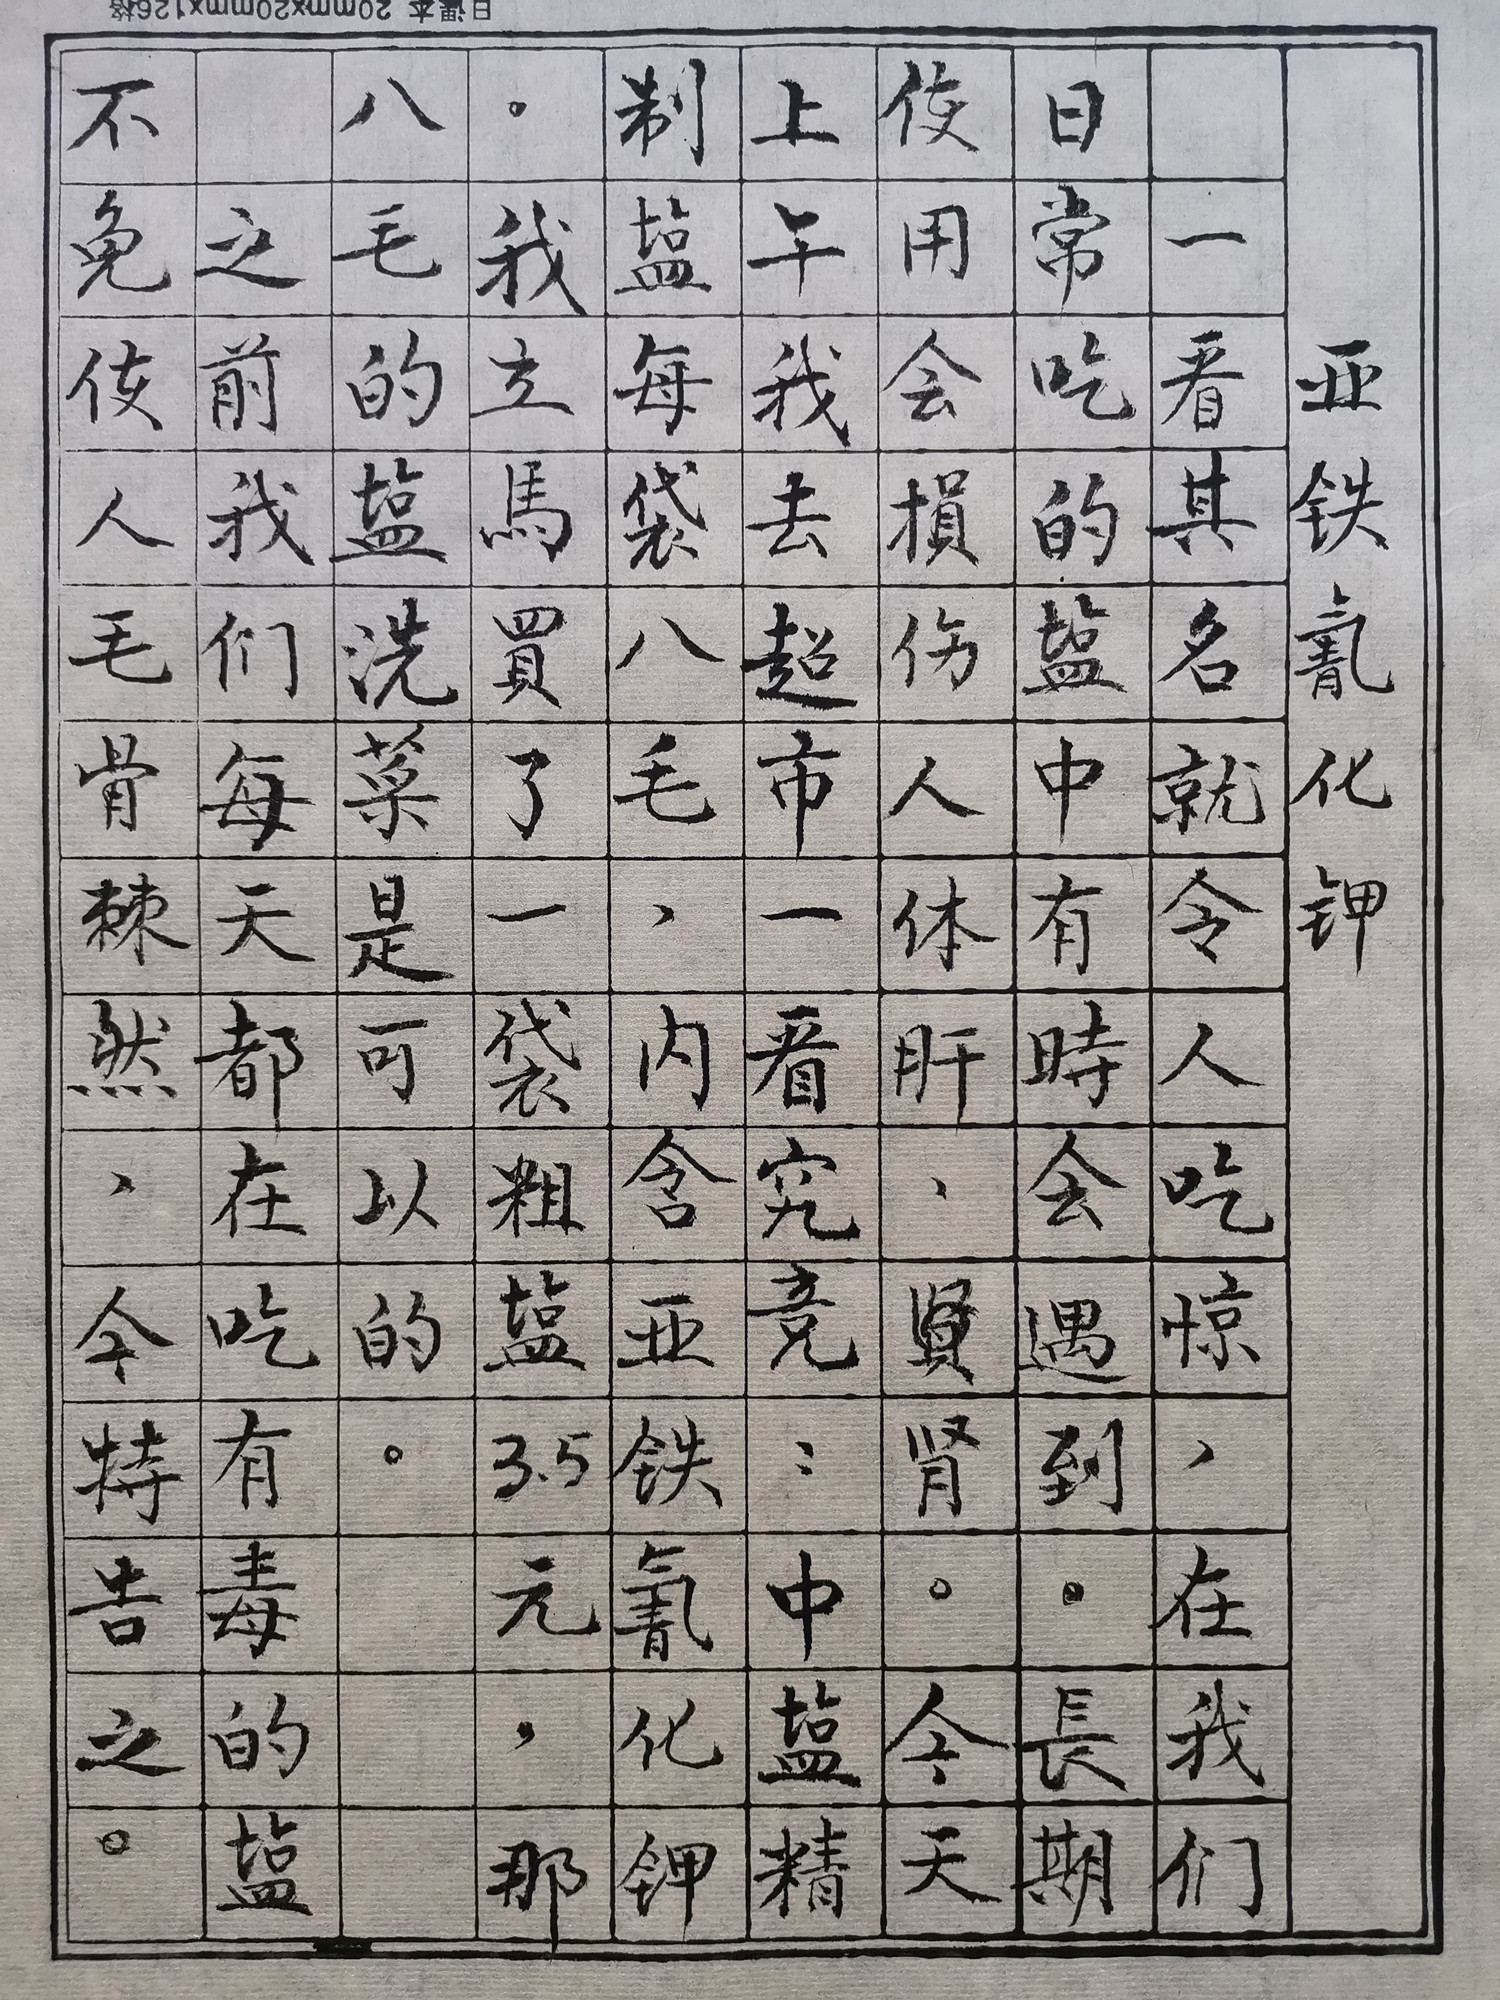 日课本 20mmx20mmx126格
亚铁氰化钾
一看其名就令人吃惊,在我们
日常吃的塩中有時会遇到。長期
使用会損伤人体肝、賢肾。今天
上午我去超市一看究竟:中塩精
制塩每袋八毛,内含亚铁氰化钾
。我立馬買了一袋粗塩3.5元,那
八毛的塩洗菜是可以的。
之前我们每天都在吃有毒的塩
不免使人毛骨棘然、今特告之。